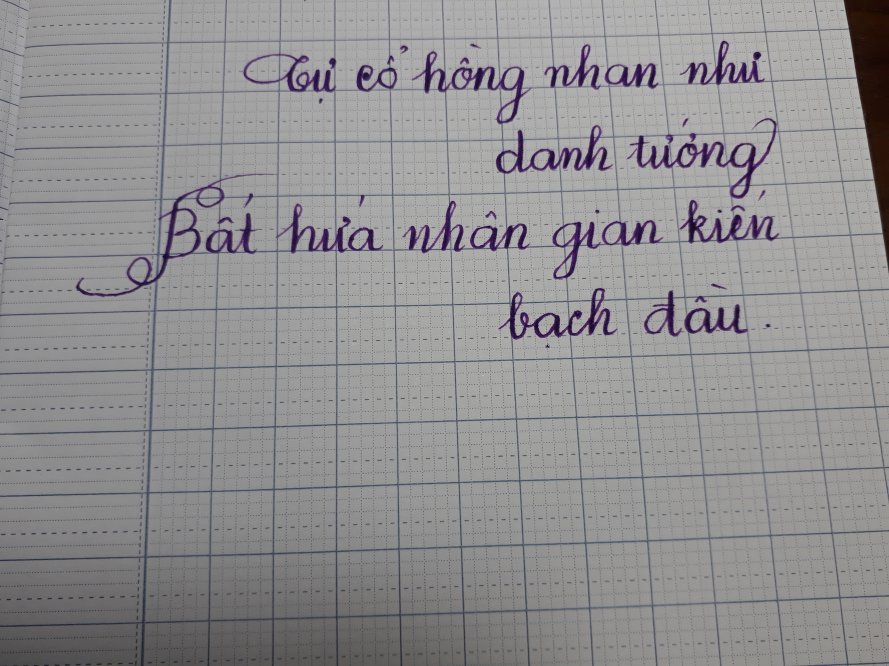 Tự cổ hồng nhan như
danh tướng
Bất hứa nhân gian kiến
bạch đầu.